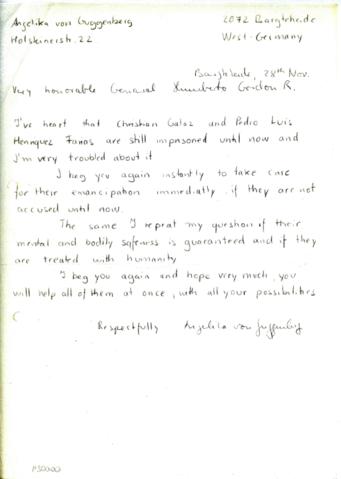 Angelika von Guggenberg 2072 Bargteheide
Holsteinerstr. 22 West-Germany
Bargteheide, 28th Nov.
Very honorable General Humberto Gordon R.
I've heart that Christian Galaz and Pedro Luis
Henriquez are still imprisoned until now and
I'm very troubled about it
I beg you again instantly to take care
for their emancipation immediatly, if they are not
accused until now.
The same I repeat my question if their
mental and bodily safeness is guaranteed and if they
are treated with humanity
I beg you again and hope very much, you
will help all of them at once, with all your possibilities
Respectfully Angelika von Guggenberg